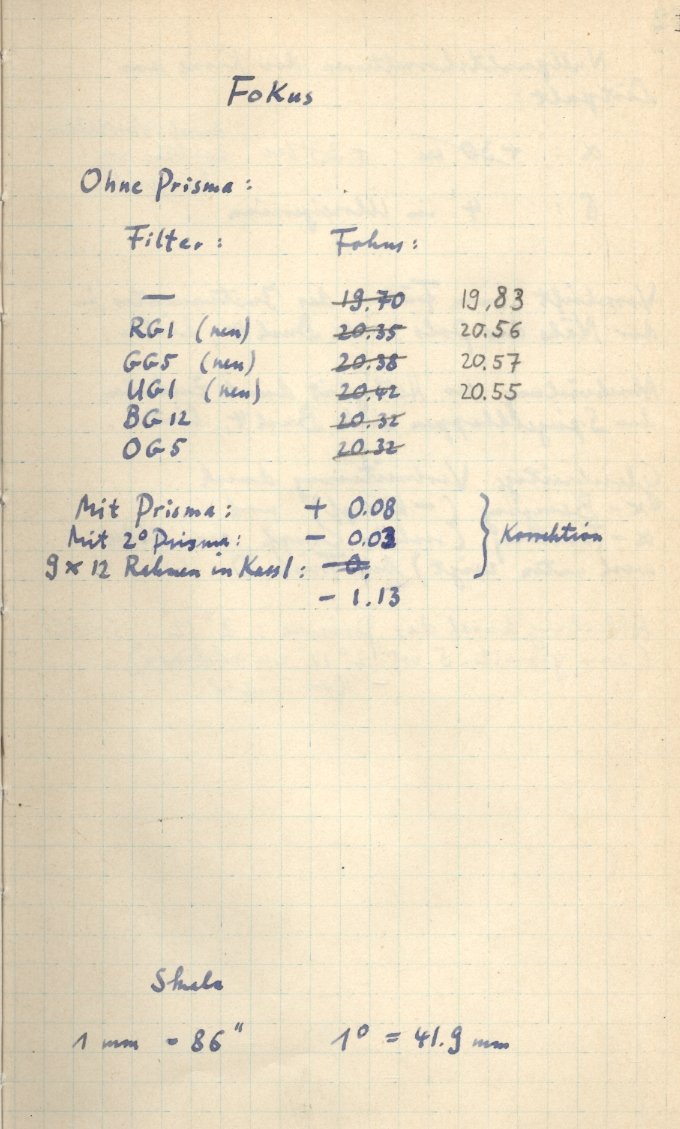 Fokus
Ohne Prisma:
Filter: Fokus:
— 19.70 19,83
RG1 (neu) 20.35 20.56
GG5 (neu) 20.38 20.57
UG1 (neu) 20.42 20.55
BG12 20.32
OG5 20.32
Mit Prisma: + 0.08
Mit 2° Prisma: - 0.03 } Korrektion
9 x 12 Rahmen in Kass1: - 0.
- 1.13
Skala
1 mm = 86" 1° = 41.9 mm